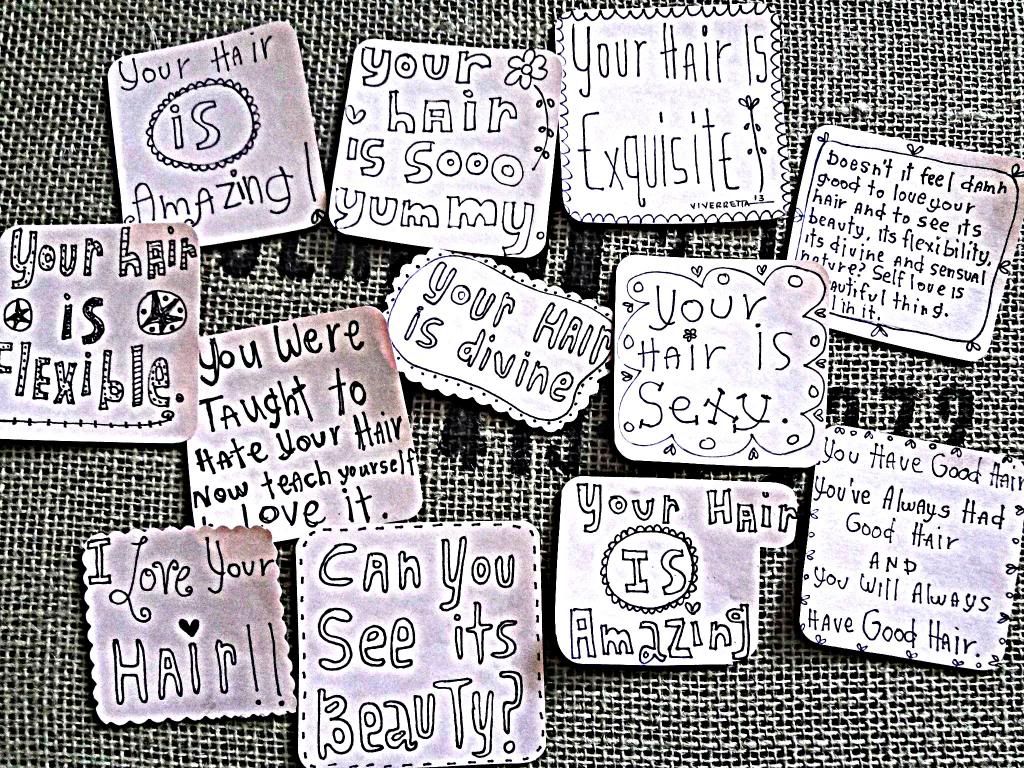 Your HAir
is
AmAzing!
your
hAir
is sooo
yummy.
Your HAir Is
Exquisite!
VIVERRETTA '13
Doesn't it feel damn
good to love your
hair and to see its
beauty, its flexibility,
its divine and sensual
nature? Self love is
autiful thing.
in it.
Your hair
is
FlExiblE.
You Were
TAught to
HAte Your HAir
Now teAch yourself
to Love it.
your HAIR
is divine
Your
HAir is
Sexy.
I Love Your
HAir!!
CAn You
See its
BeauTy?
Your HAir
IS
Amazing
You HAve Good HAir
You've AlwAys HAd
Good HAir
AND
You Will AlwAys
HAve Good HAir.